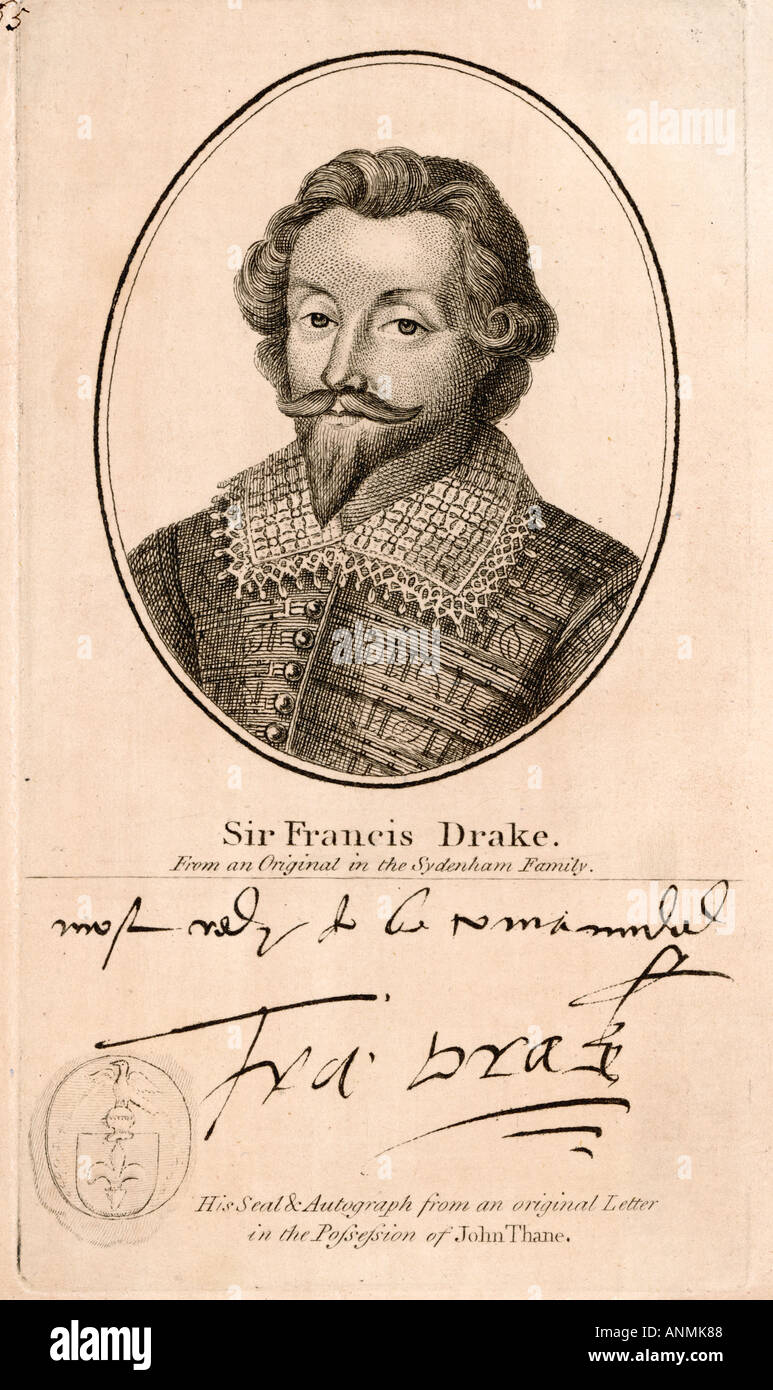 55
Sir Francis Drake.
From an Original in the Sydenham Family.
most redy to be comannded
Fra: Drake
His Seal & Autograph from an original Letter
in the Poſseſsion of John Thane.
alamy
Image ID: ANMK88
www.alamy.com